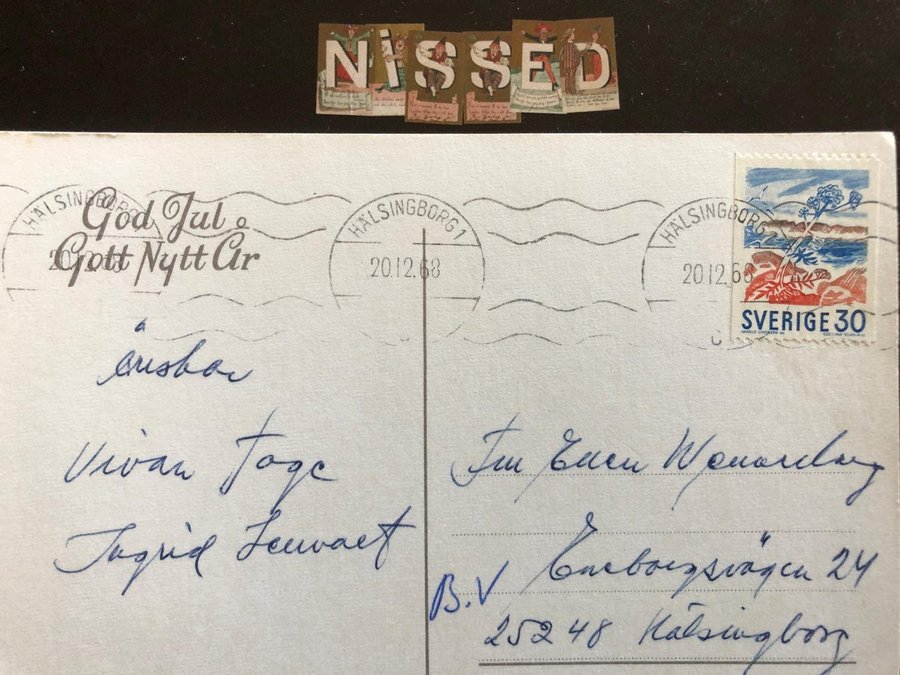 NiSSED
God Jul o
Gott Nytt År
HÄLSINGBORG 1
20.12.68
HÄLSINGBORG 1
20.12.68
HÄLSINGBORG 1
20.12.68
SVERIGE 30
önskar
Vivan Tage
Ingrid Lennart
Fru Ellen
Eneborgsvägen 24
B.V
252 48 Hälsingborg